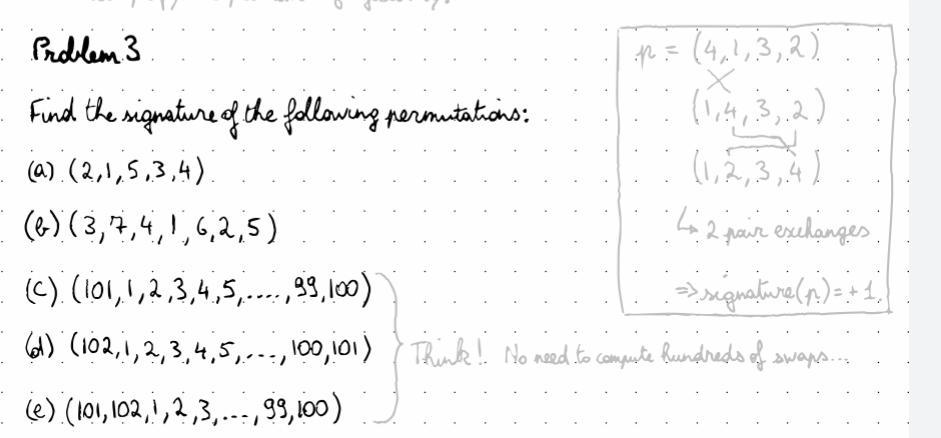 Problem 3
Find the signature of the following permutations:
(a) (2,1,5,3,4)
(b) (3,7,4,1,6,2,5)
(c) (101,1,2,3,4,5,....,99,100)
(d) (102,1,2,3,4,5,...,100,101)
(e) (101,102,1,2,3,...,99,100)
Think! No need to compute hundreds of swaps...
p = (4,1,3,2)
(1,4,3,2)
(1,2,3,4)
↳ 2 pair exchanges
=> signature(p) = +1